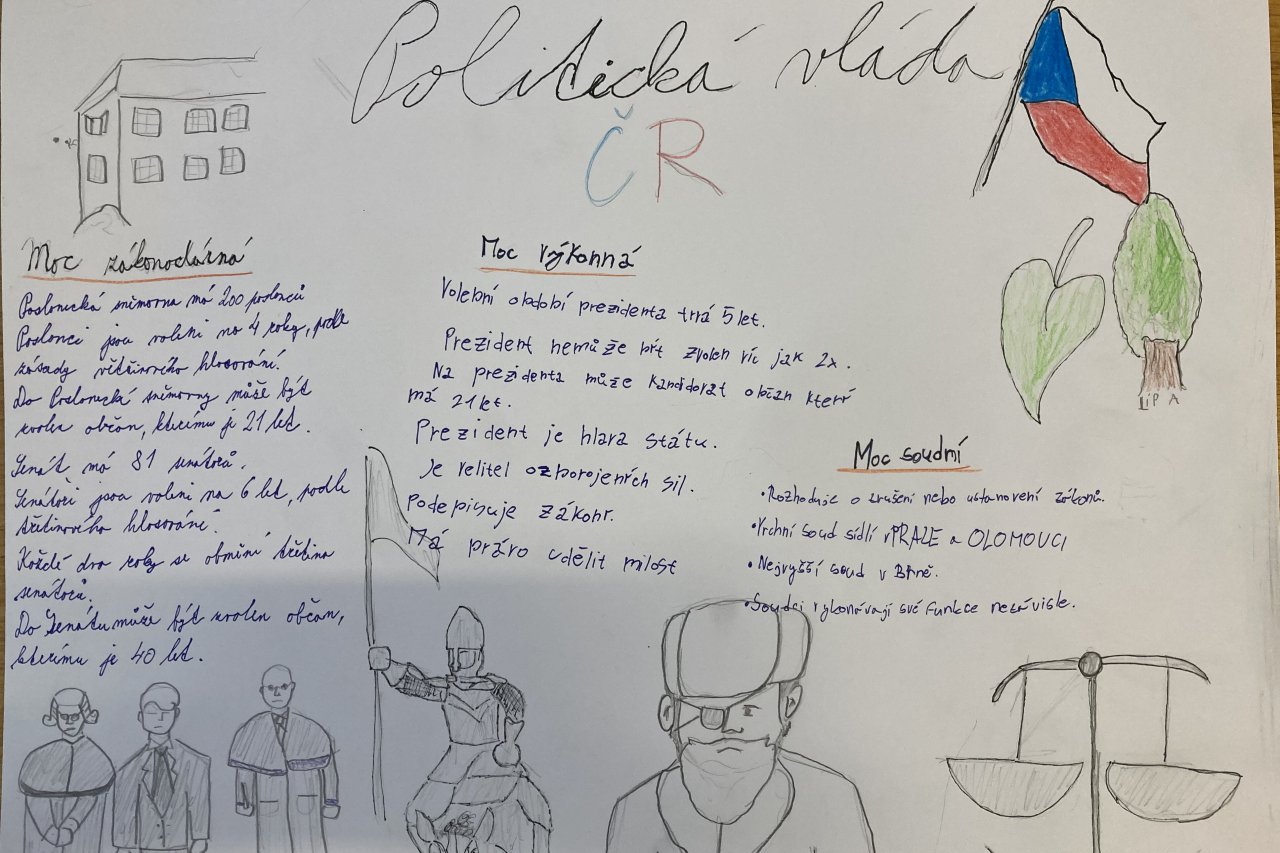 Politická vláda
ČR
Moc zákonodárná
Poslanecká sněmovna má 200 poslanců
Poslanci jsou voleni na 4 roky, podle
zásady většinového hlasování.
Do Poslanecká sněmovny může být
zvolen občan, kterému je 21 let.
Senát má 81 senátorů.
Senátoři jsou voleni na 6 let, podle
třetinového hlasování.
Každé dva roky se obmění třetina
senátorů.
Do Senátu může být zvolen občan,
kterému je 40 let.
Moc výkonná
Volební období prezidenta trvá 5 let.
Prezident nemůže být zvolen víc jak 2x.
Na prezidenta může kandidovat občan který
má 21 let.
Prezident je hlava státu.
Je velitel ozbrojených sil.
Podepisuje zákony.
Má právo udělit milost
LÍPA
Moc soudní
• Rozhoduje o zrušení nebo ustanovení zákonů.
• Vrchní soud sídlí v PRAZE a OLOMOUCI
• Nejvyšší soud v Brně.
• Soudci vykonávají své funkce nezávisle.